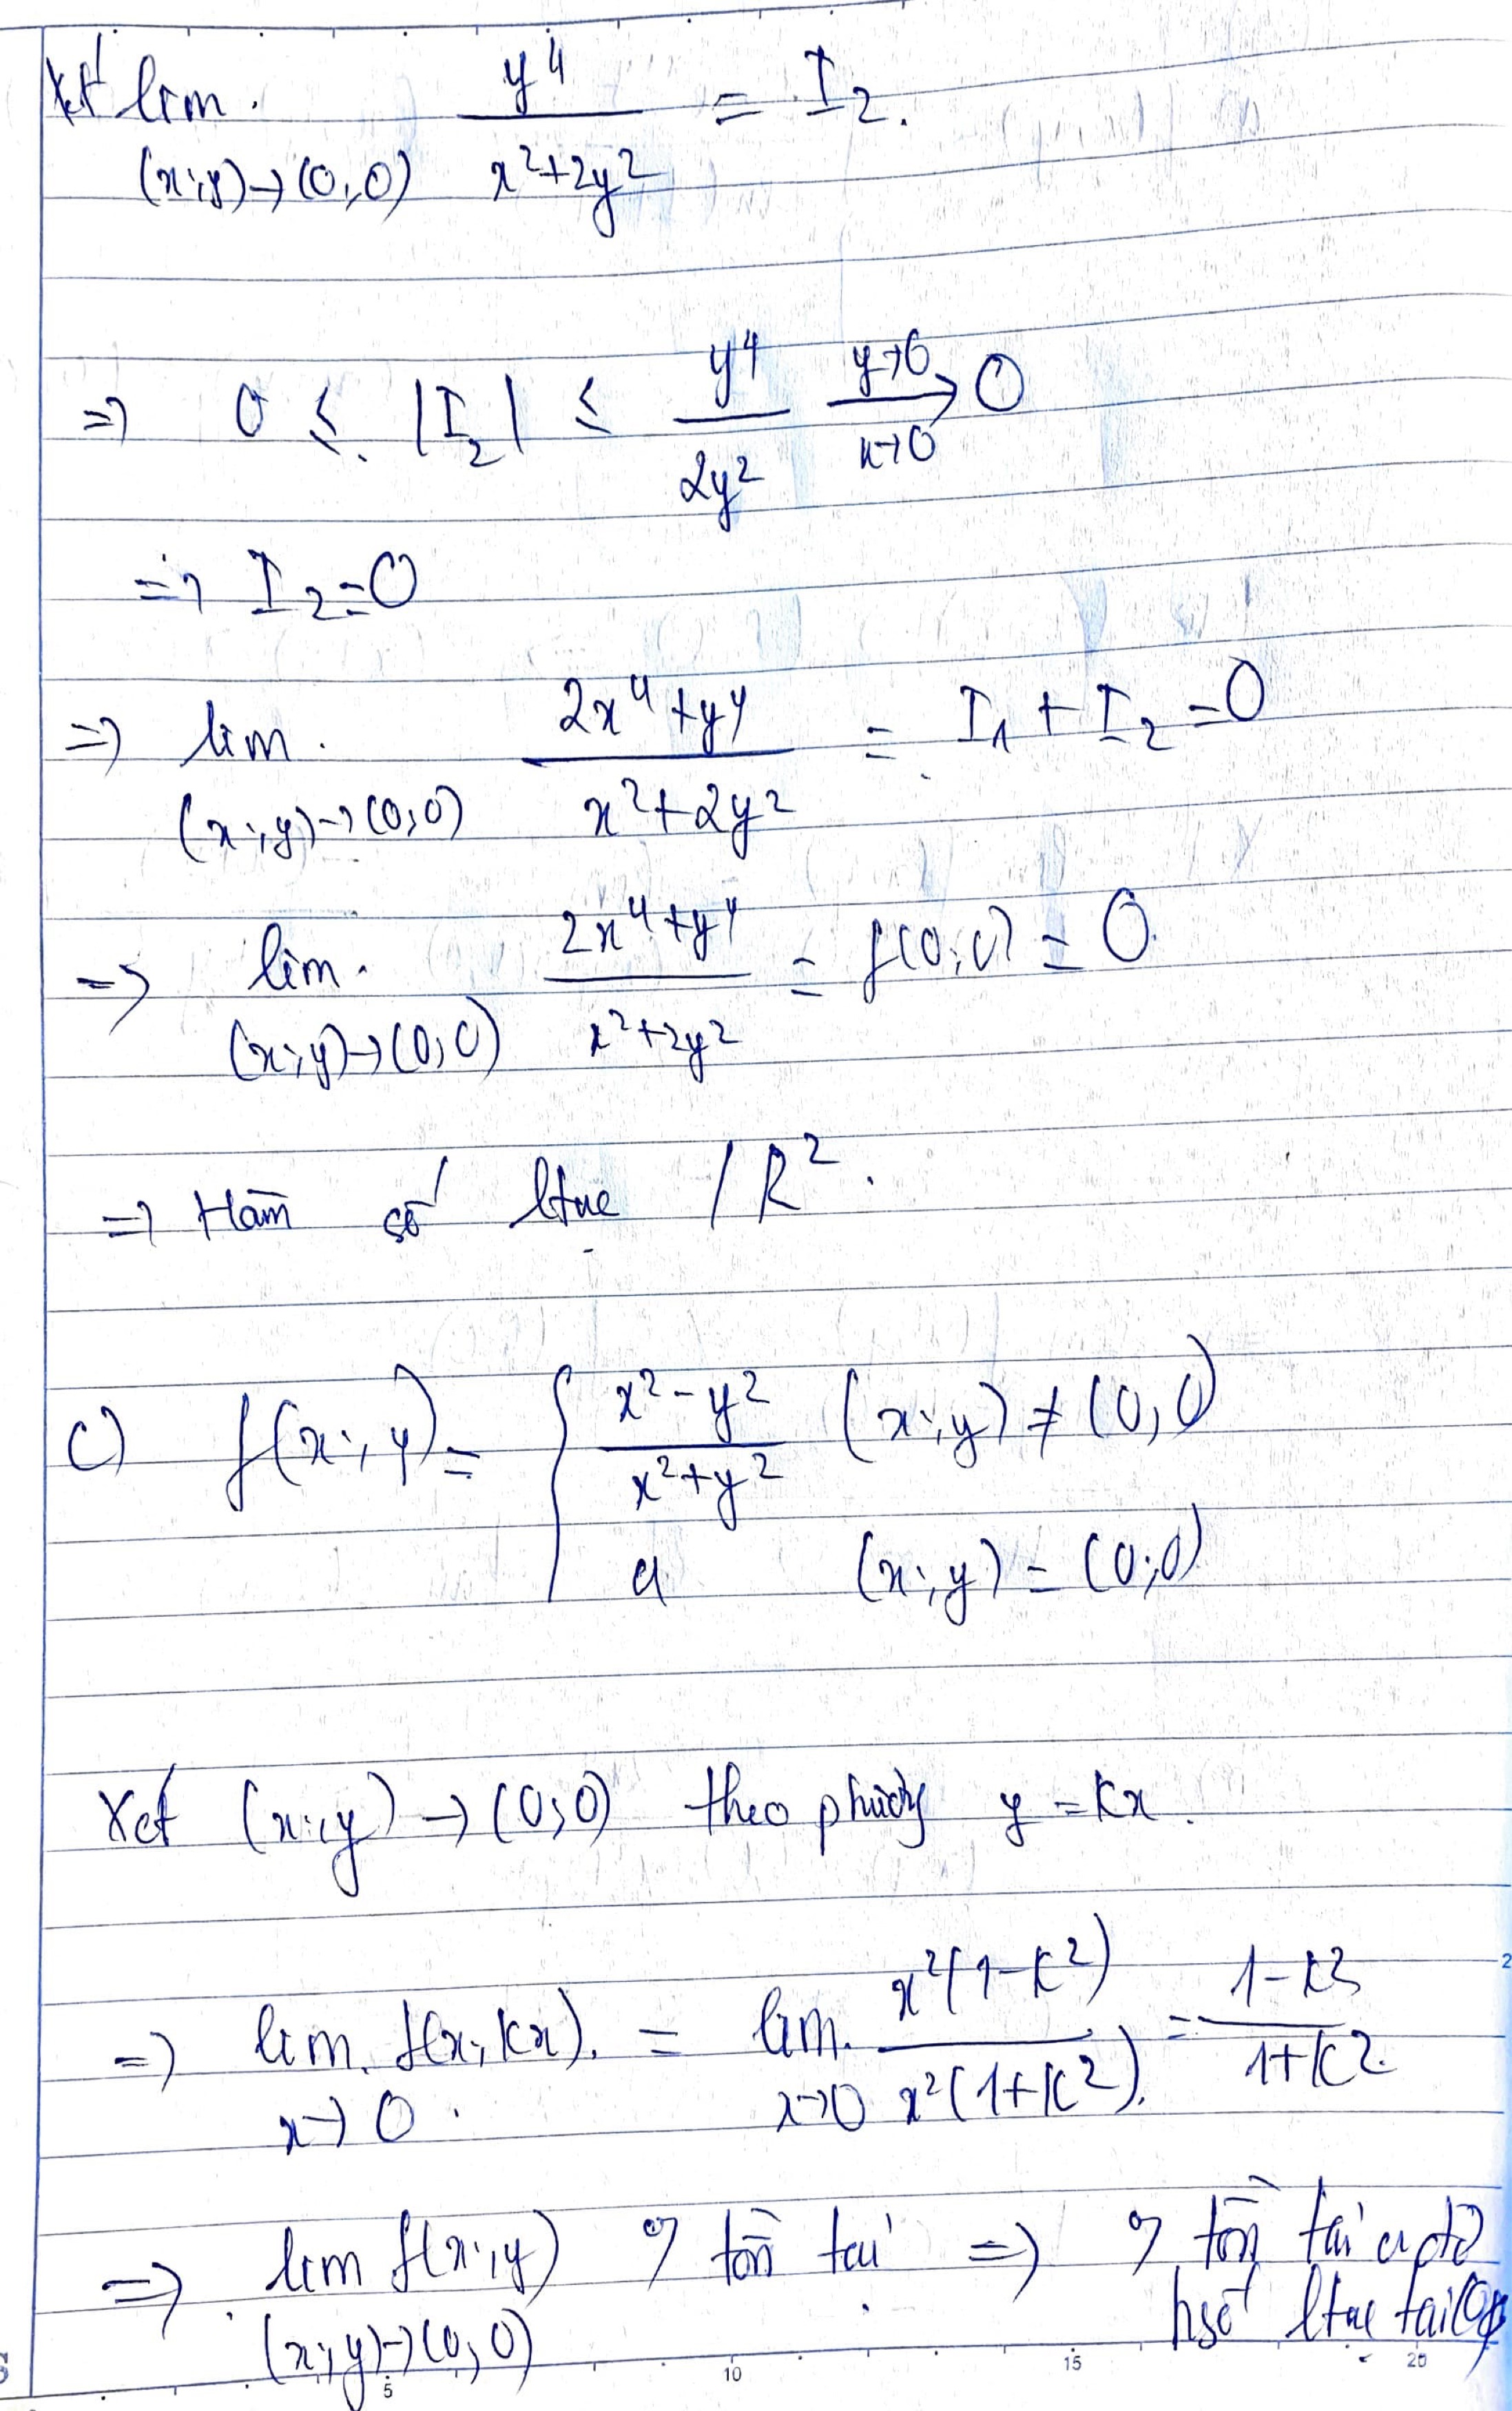 Xét lim y⁴/(x²+2y²) = I₂.
(x;y)→(0;0)
⇒ 0 ≤ |I₂| ≤ y⁴/2y² → 0
y→0
x→0
⇒ I₂=0
⇒ lim (2x⁴+y⁴)/(x²+2y²) = I₁ + I₂ = 0
(x;y)→(0;0)
⇒ lim (2x⁴+y⁴)/(x²+2y²) = f(0;0) = 0.
(x;y)→(0;0)
⇒ Hàm số ltục /R².
c) f(x;y) = { (x²-y²)/(x²+y²) (x;y) ≠ (0;0)
a (x;y) = (0;0)
Xét (x;y) → (0;0) theo phương y = kx.
⇒ lim f(x;kx) = lim x²(1-k²)/x²(1+k²) = (1-k²)/(1+k²).
x→0 x→0
⇒ lim f(x;y) tồn tại ⇒ tồn tại a để
(x;y)→(0;0) hsố ltục tại
5 10 15 20